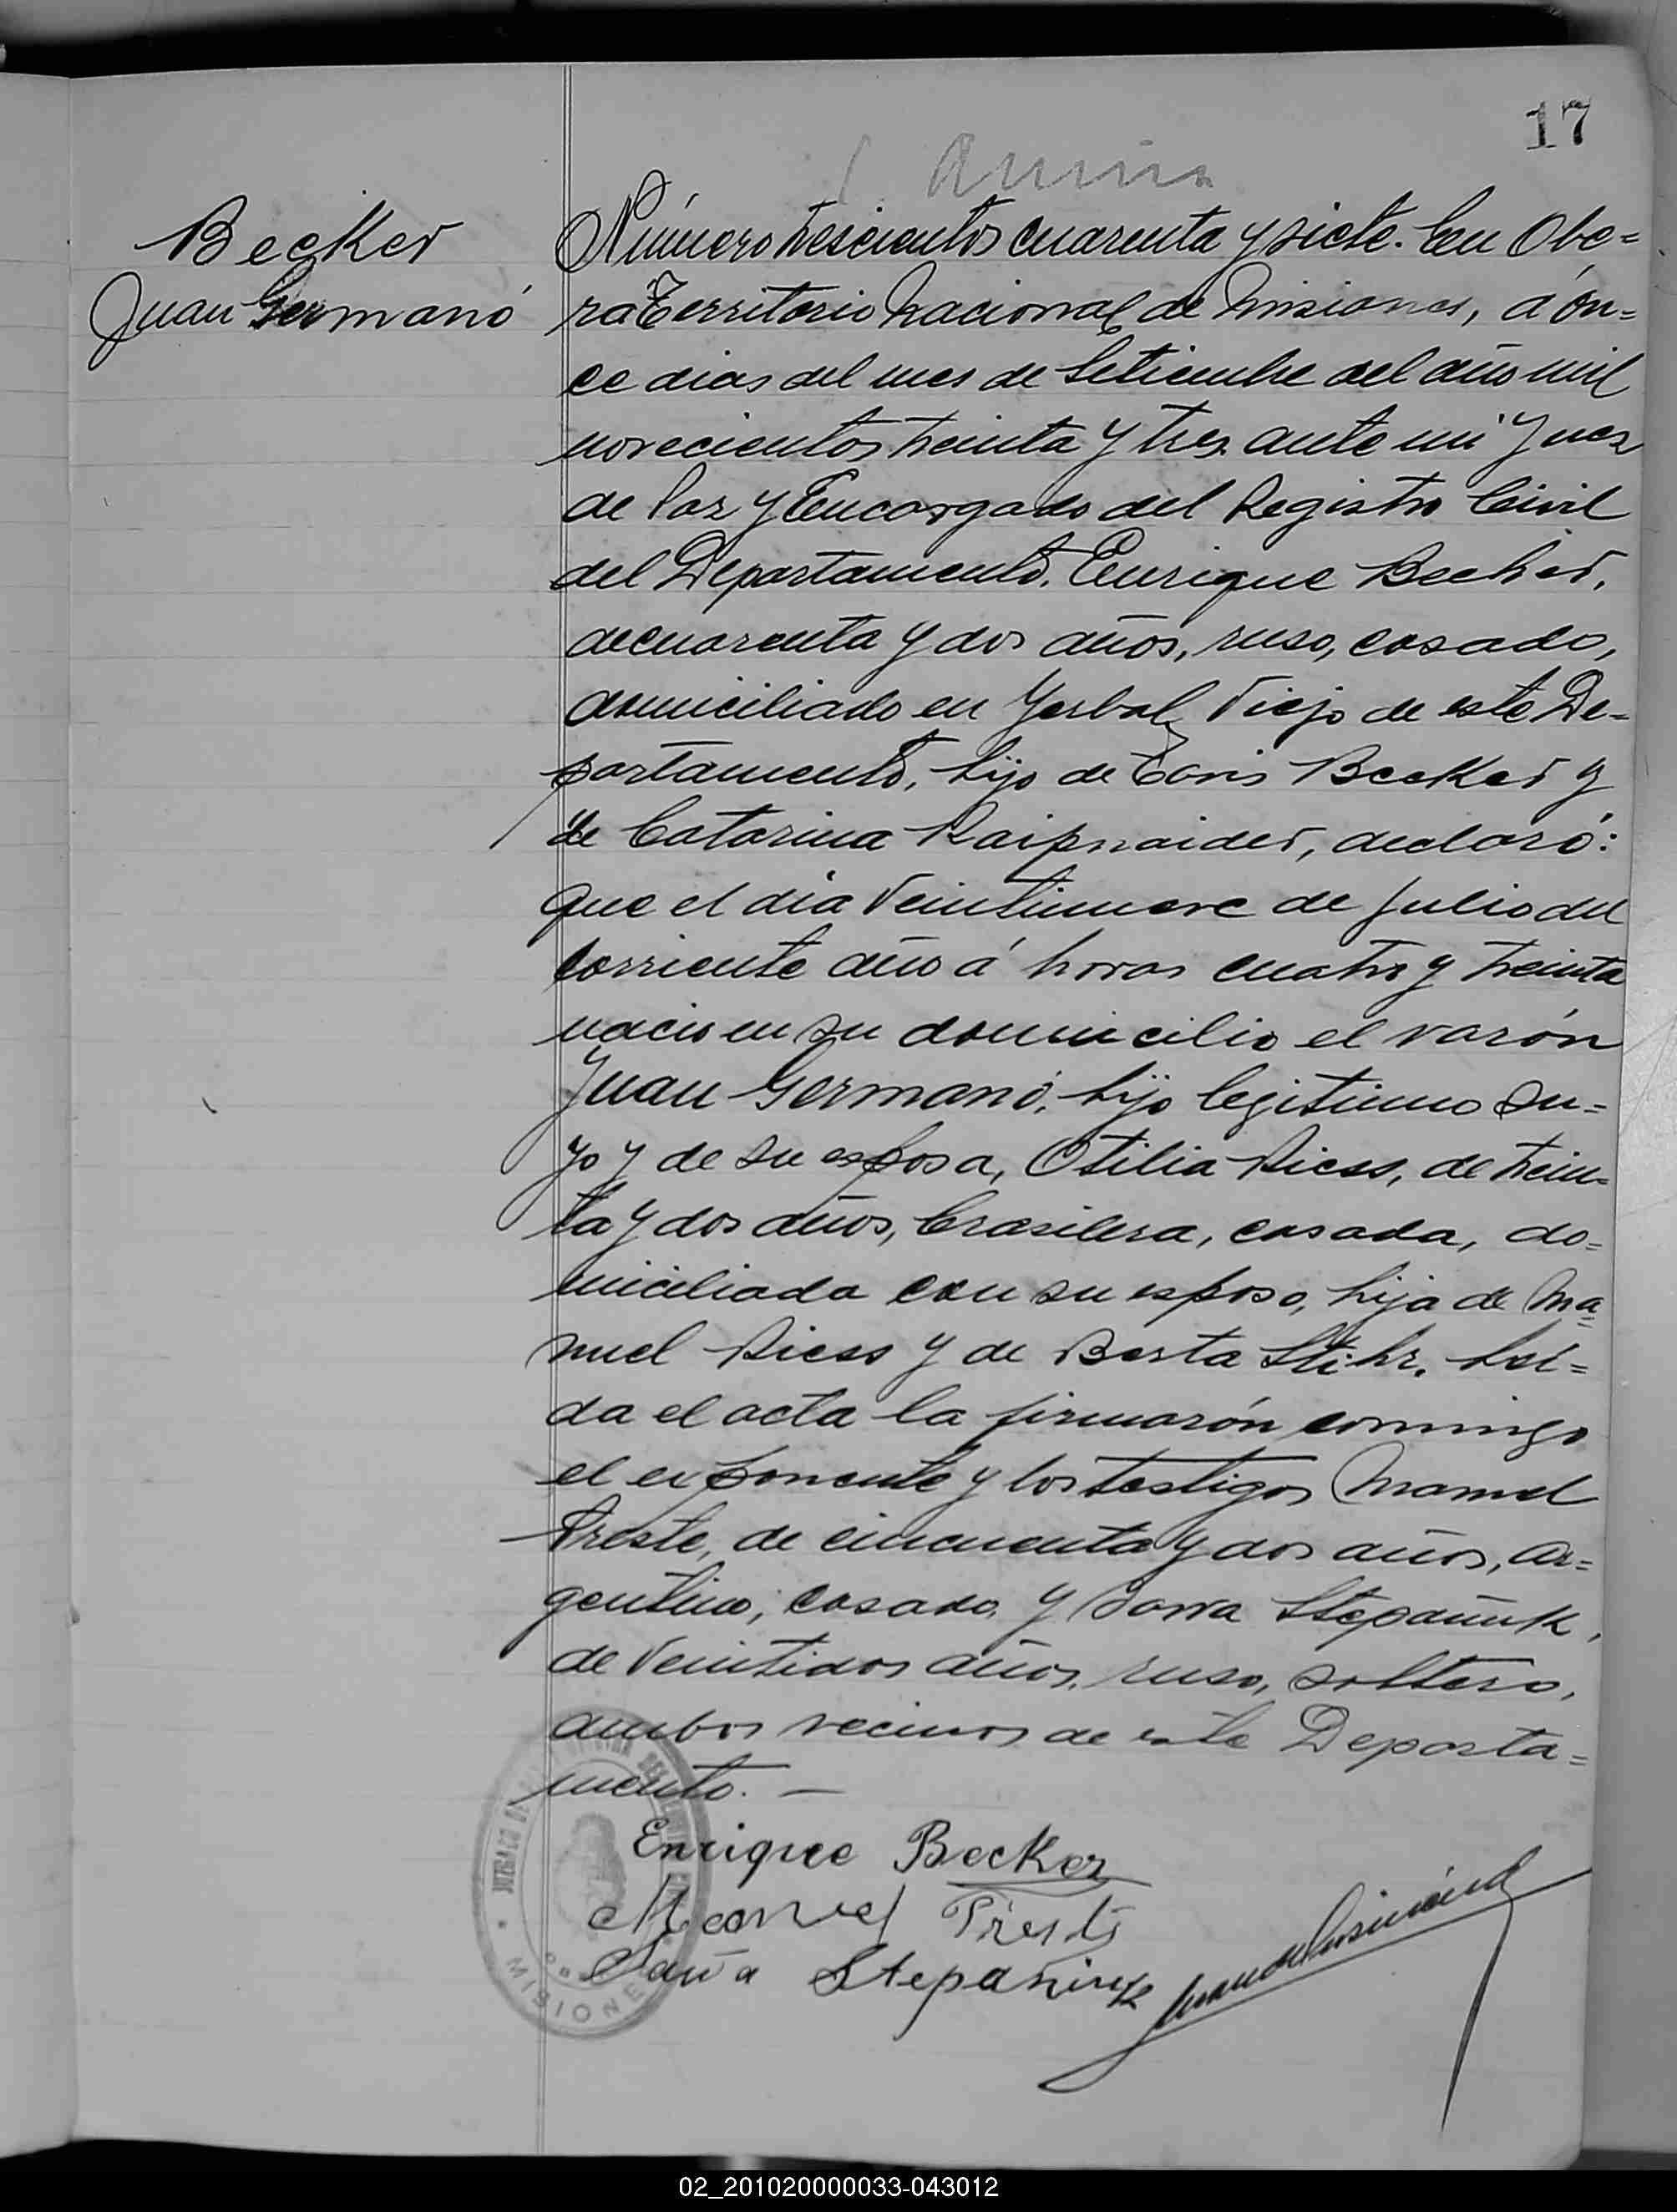 17
Becker
Juan Germanó
Número trescientos cuarenta y siete. En Obe=
rá Territorio Nacional de Misiones, á on=
ce dias del mes de Setiembre del año mil
novecientos treinta y tres. ante mi Juez
de Paz y Encargado del Registro Civil
del Departamento, Enrique Becker,
de cuarenta y dos años, ruso, casado,
domiciliado en Yerbal Viejo de este De=
partamento, hijo de Becker y
de Catarina Raipnaider, declaró:
que el día veintinueve de Julio del
corriente año á horas cuatro y treinta
nació en su domicilio el varón
Juan Germanó, hijo legitimo su=
yo y de su esposa, Otilia Riess, de trein=
ta y dos años, brasilera, casada, do=
miciliada con su esposo, hija de Ma=
nuel Riess y de Berta Stihr. Leí=
da el acta la firmarón conmigo
el exponente y los testigos Manuel
Preste, de cincuenta y dos años, ar=
gentino, casado, y Sawa Stepañuk,
de veintidos años, ruso, soltero,
ambos vecinos de este Departa=
mento. —
Enrique Becker
Manuel
Sawa
JUZGADO DE
MISIONES
02_201020000033-043012